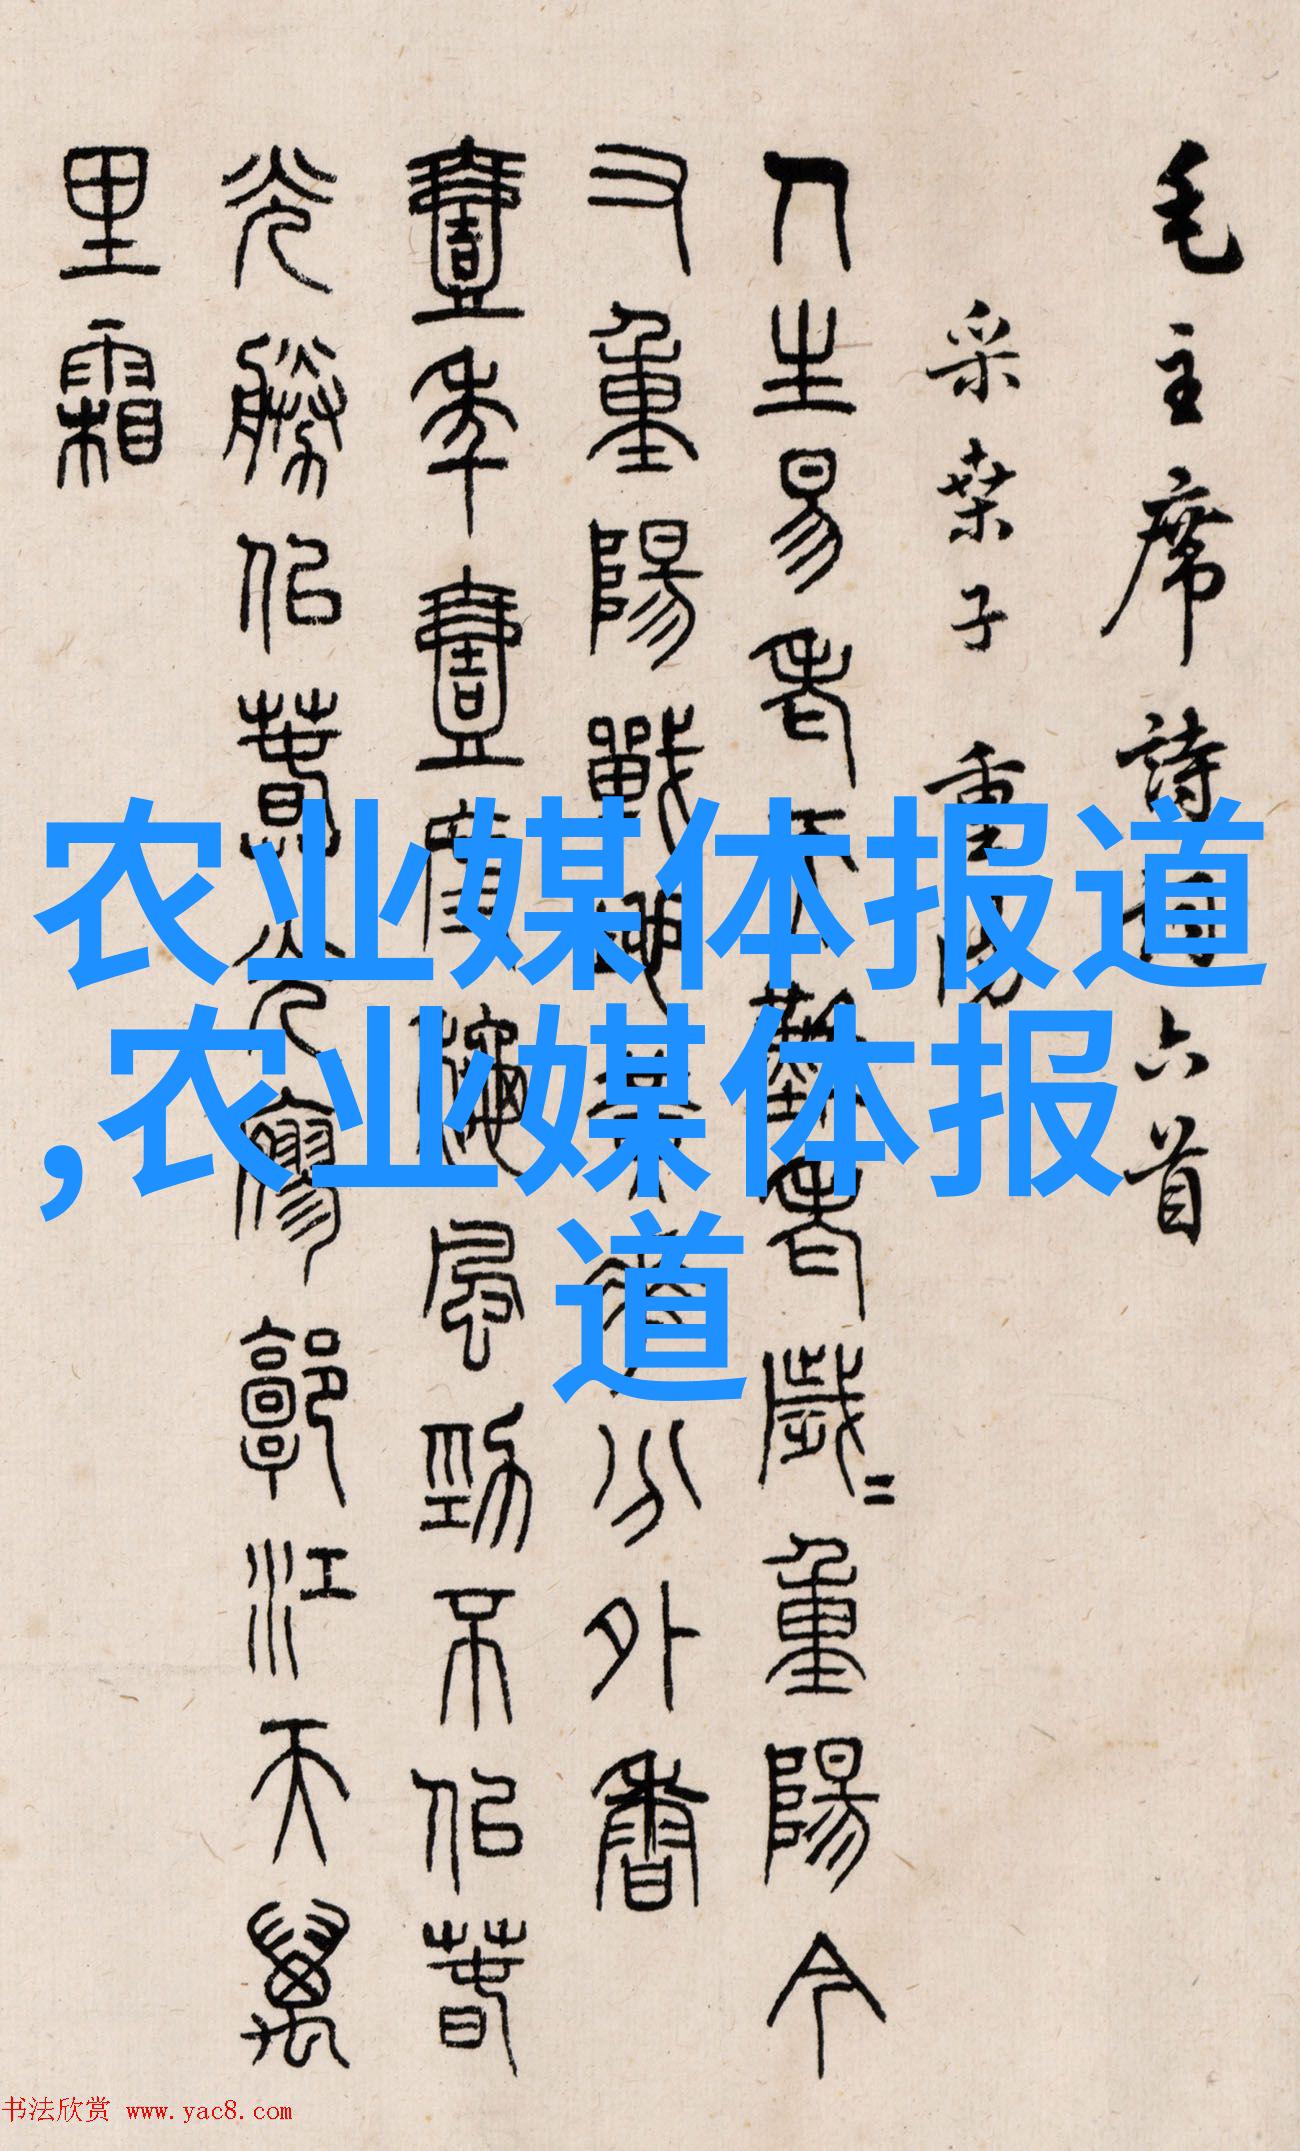 毛主席詩詞六首
采桒子 重陽
人生易老天難老歲=重陽今
又重陽戰地黃花分外香
壹年壹度秌風勁不佀萅
光勝佀萅光廖郭江天萬
里霜
农业媒体报道
,农业媒体报
道
书法欣赏 www.yac8.com